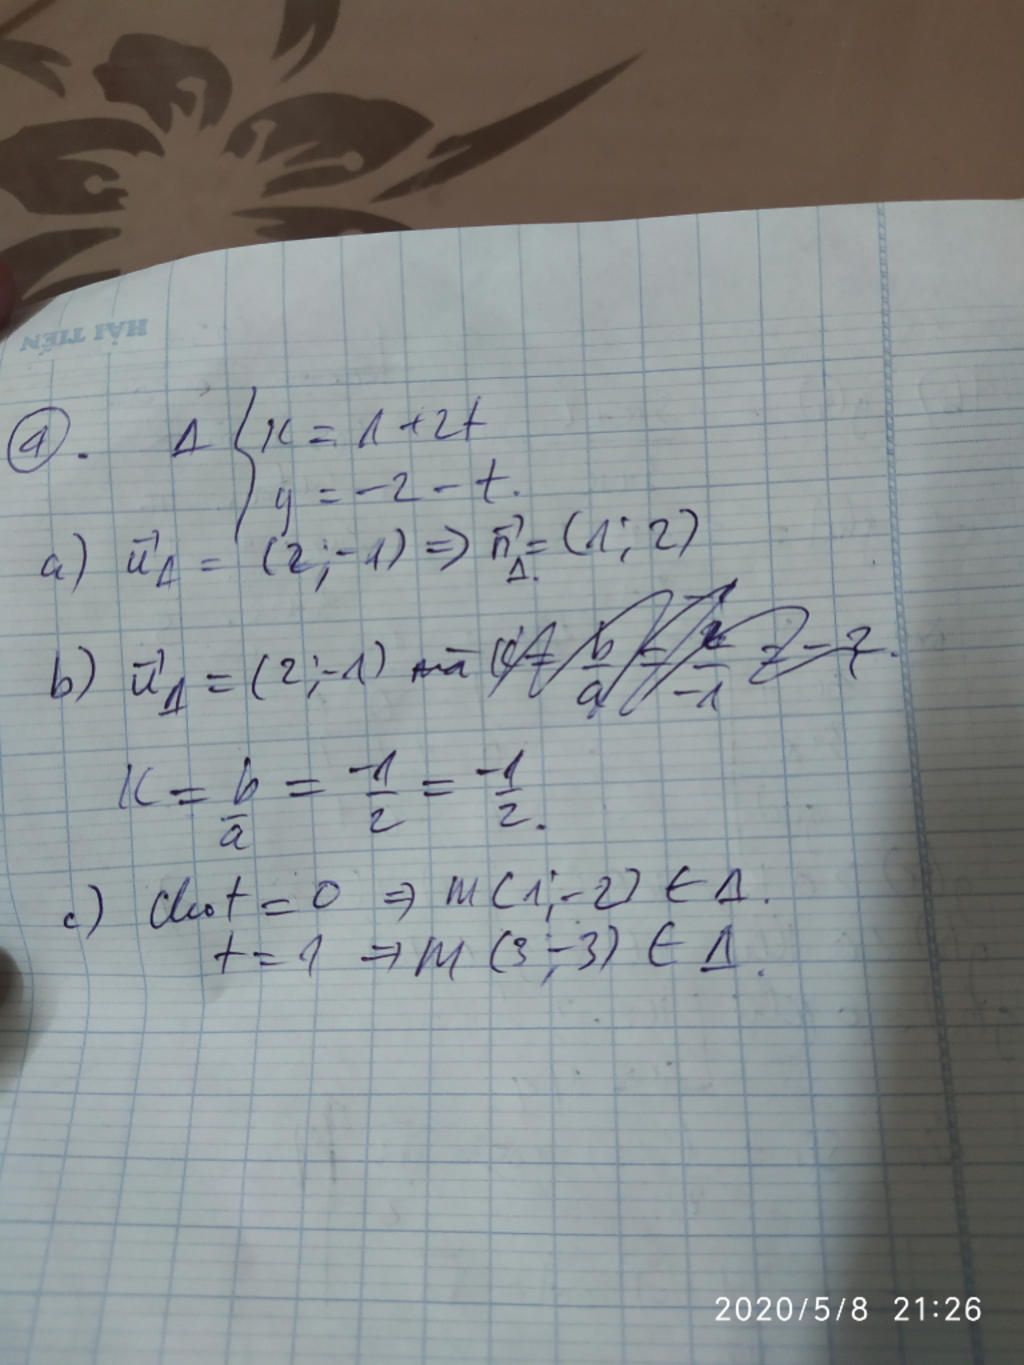 HẢI TIẾN
①. Δ { x = 1 + 2t
y = -2 - t.
a) u⃗Δ = (2; -1) => n⃗Δ = (1; 2)
b) u⃗Δ = (2; -1) mà
K = b/a = -1/2 = -1/2.
c) Cho t = 0 => M (1; -2) ∈ Δ.
t = 1 => M (3; -3) ∈ Δ.
2020/5/8 21:26